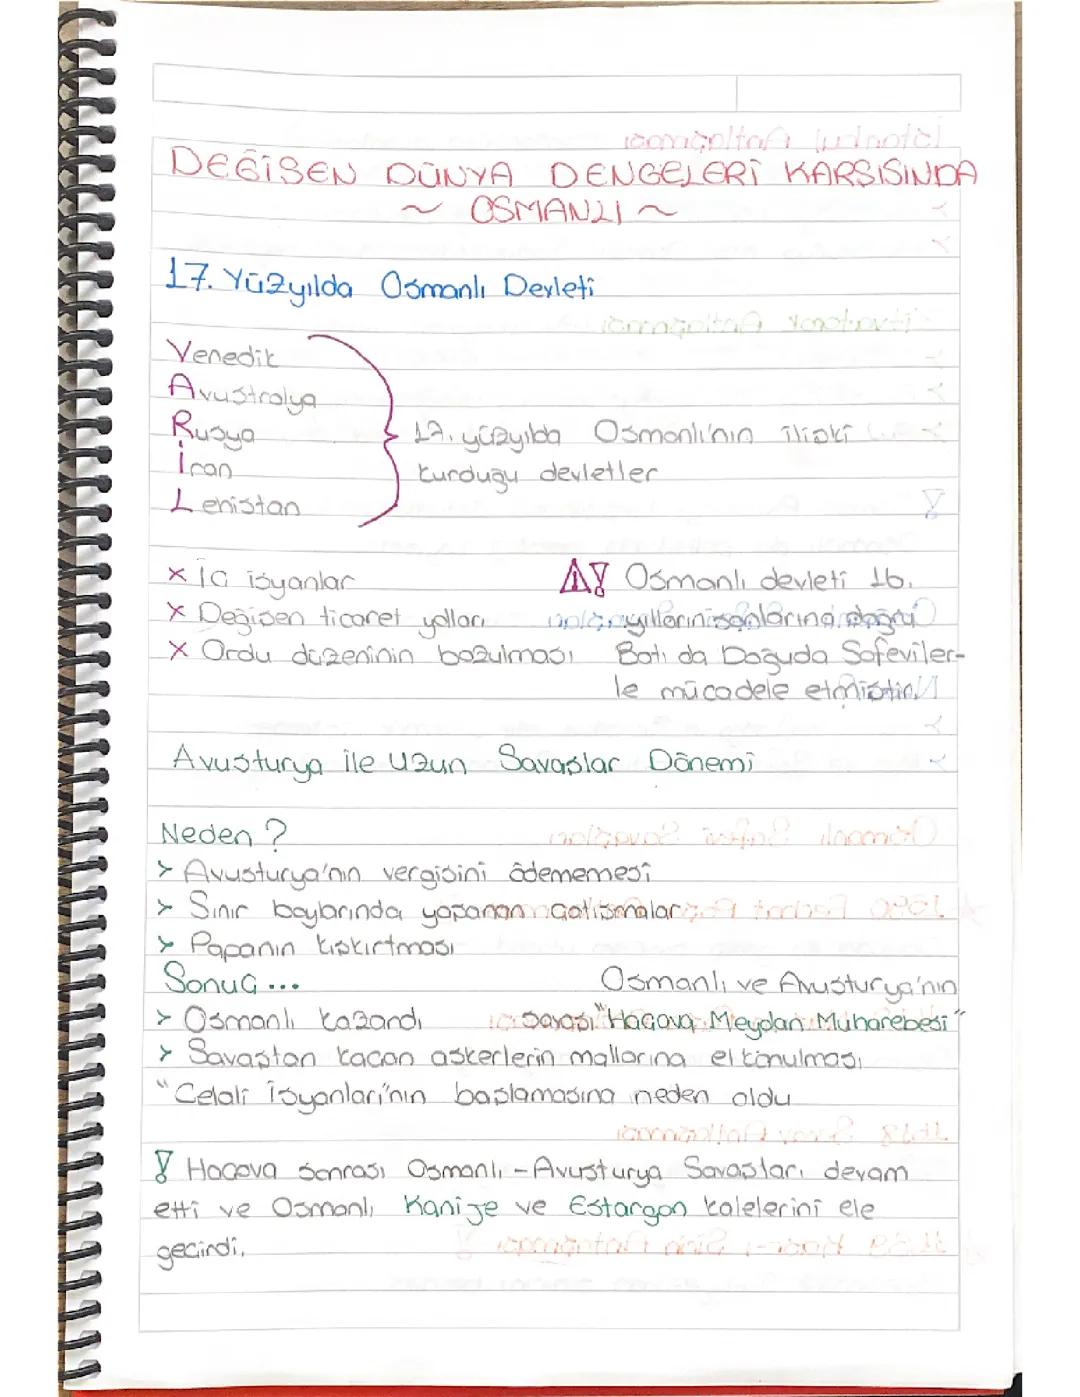 DEĞİŞEN DÜNYA DENGELERİ KARŞISINDA
~ OSMANLI ~
17. Yüzyılda Osmanlı Devleti
Venedik
Avustralya
Rusya
İran
Lehistan
17. yüzyılda Osmanlı'nın ilişki
kurduğu devletler
x İç isyanlar
x Değişen ticaret yolları
x Ordu düzeninin bozulması
Osmanlı devleti 16.
yılların sonlarına doğru
Batı da Doğuda Safeviler-
le mücadele etmiştir.
Avusturya ile Uzun Savaşlar Dönemi
Neden?
> Avusturya'nın vergisini ödememesi
> Sınır boylarında yaşanan çatışmalar
> Papanın kışkırtması
Sonuç...
> Osmanlı kazandı
Osmanlı ve Avusturya'nın
savaşı "Haçova Meydan Muharebesi"
> Savaştan kaçan askerlerin mallarına el konulması
"Celali İsyanları'nın başlamasına neden oldu
! Haçova sonrası Osmanlı-Avusturya Savaşları devam
etti ve Osmanlı Kanije ve Estargon kalelerini ele
geçirdi.